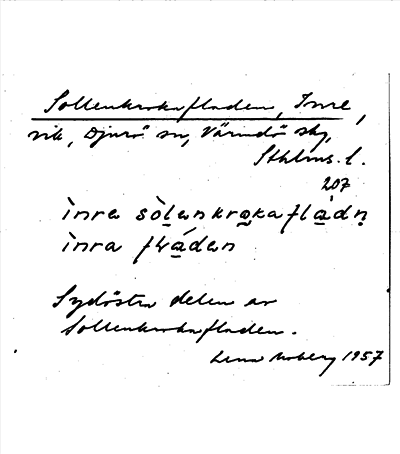 Sollenkrokafladen, Inre,
vik, Djurö sn, Värmdö skg,
Sthlms. l.
207
ìnra sòl̠ankro̠kaflà̠dṇ
ìnra flá̠dan
Sydöstra delen av
Sollenkrokafladen.
Lena Moberg 1957